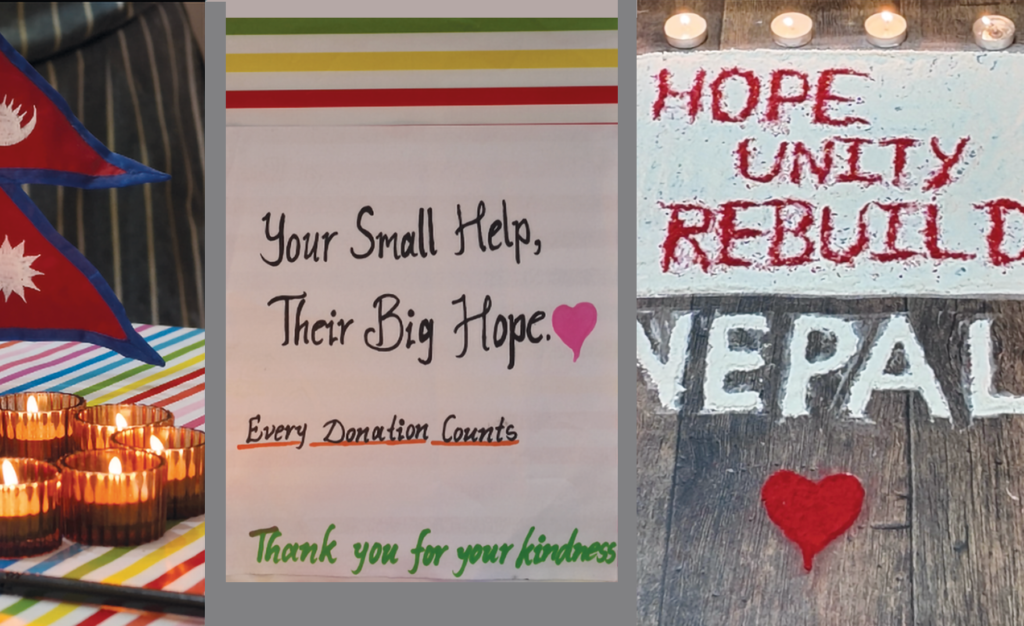 Your Small Help,
Their Big Hope.
Every Donation Counts
Thank you for your kindness
HOPE
UNITY
REBUILD
NEPAL